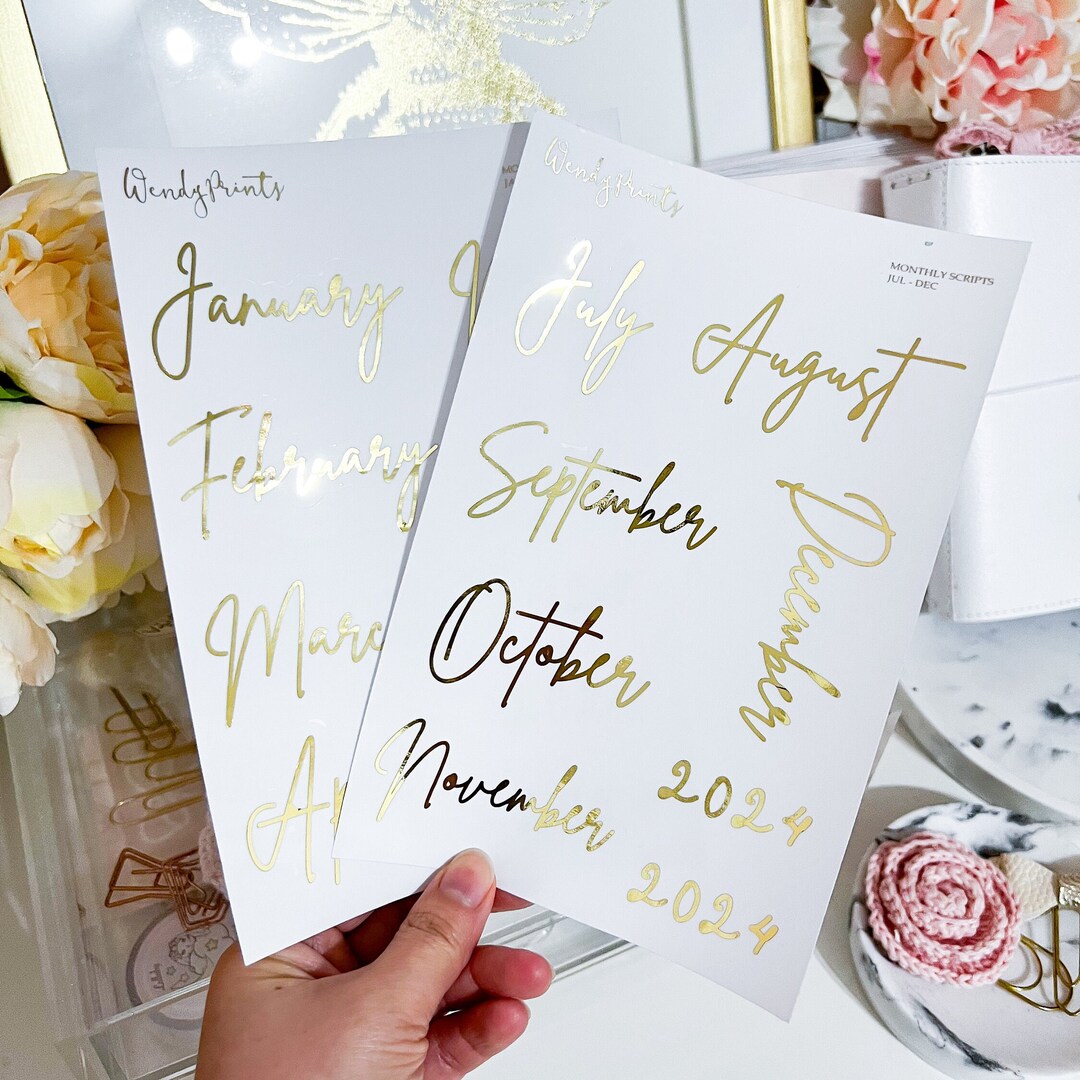 WendyPrints
January
February
Marc
Ap
WendyPrints
MONTHLY SCRIPTS
JUL - DEC
July
August
September
December
October
November
2024
2024